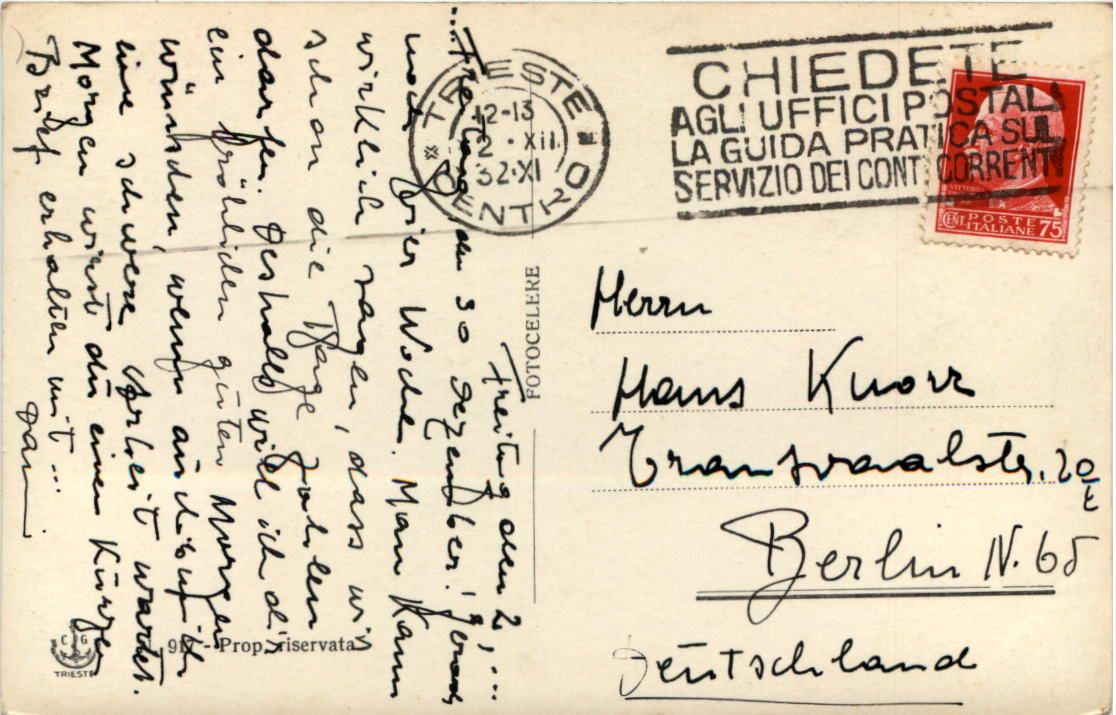 Freitag den 2,...
...Freitag, den 30 Dezember! Gerade
noch vier Woche. Man kann
wirklich sagen, dass wir
schon die Tage zählen
dürfen. Deshalb will ich dir
ein fröhlichen guten Morgen
wünschen, wenn auch
eine schwere Arbeit wartet.
Morgen wirst du einen kurzen
Brief erhalten mit...
TRIESTE
12-13
2 · XII
32·XI
CENTRO
CHIEDETE
AGLI UFFICI POSTALI
LA GUIDA PRATICA SUL
SERVIZIO DEI CONTI CORRENTI
CENT POSTE ITALIANE 75
FOTOCELERE
Herrn
Hans Knorr
Transvaalstr. 20
Berlin N. 65
Deutschland
C G
TRIESTE
- Prop. riservata